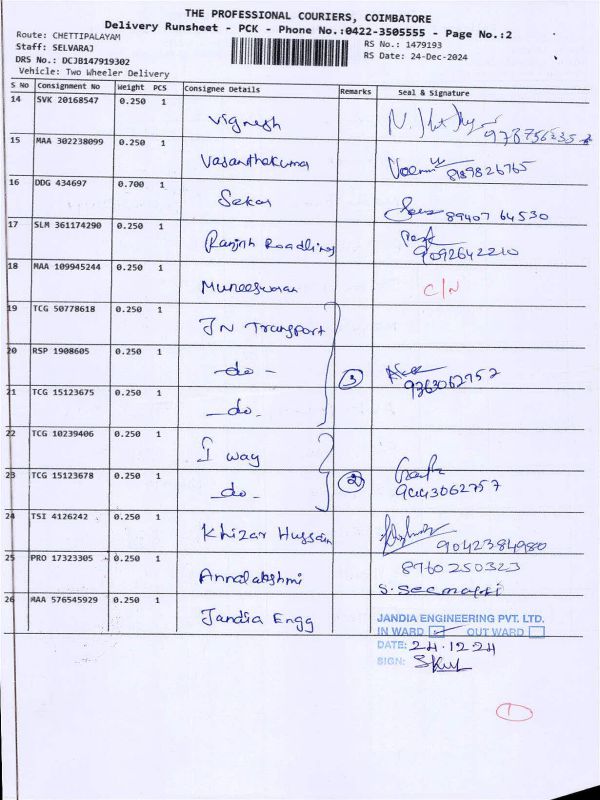 THE PROFESSIONAL COURIERS, COIMBATORE
Delivery Runsheet - PCK - Phone No.:0422-3505555 - Page No.:2
Route: CHETTIPALAYAM
RS No.: 1479193
Staff: SELVARAJ
RS Date: 24-Dec-2024
DRS No.: DCJB147919302
Vehicle: Two Wheeler Delivery
S No Consignment No Weight PCS Consignee Details Remarks Seal & Signature
14 SVK 20168547 0.250 1 Vignesh
15 MAA 302238099 0.250 1 Vasanthakumar 8189826765
16 DDG 434697 0.700 1 Sekar 89407 64530
17 SLM 361174290 0.250 1 Ranjith Roadlines 9092642210
18 MAA 109945244 0.250 1 Muneeswaran C/N
19 TCG 50778618 0.250 1 JN Transport
20 RSP 1908605 0.250 1 -do- 3 9363062752
21 TCG 15123675 0.250 1 -do-
22 TCG 10239406 0.250 1 I way
23 TCG 15123678 0.250 1 -do- 2 9443062757
24 TSI 4126242 0.250 1 Khizar Hussain 9042384980
25 PRO 17323305 0.250 1 Annalakshmi 8760250323
26 MAA 576545929 0.250 1 Jandia Engg
JANDIA ENGINEERING PVT. LTD.
IN WARD OUT WARD
DATE: 24.12.24
SIGN:
1